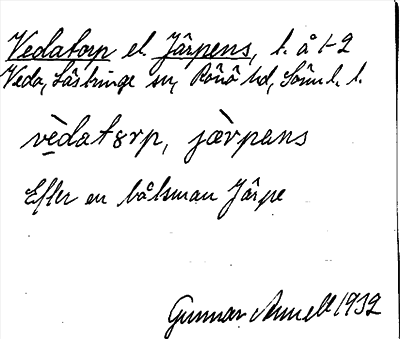 Vedatorp el. Järpens, t. å 1-2
Veda, Lästringe sn, Rönö hd, Söml. l.
vèdatɜrp, jærpens
Efter en båtsman Järpe
Gunnar Amnell 1932